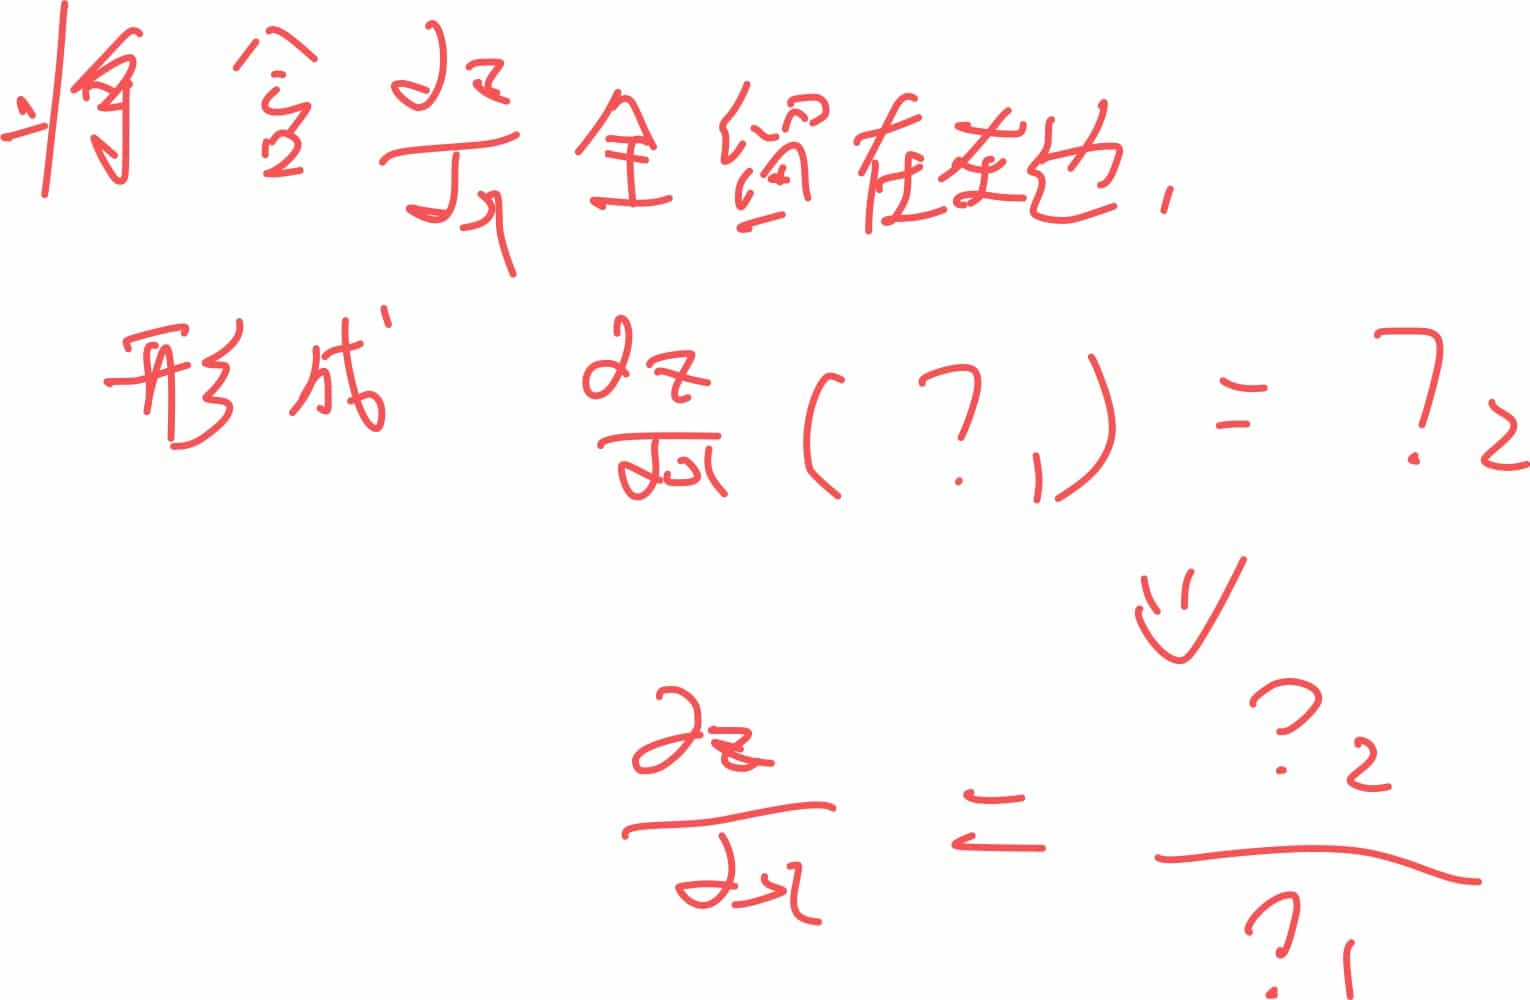 将含∂z/∂x全留在左边,
形成 ∂z/∂x (?₁) = ?₂
∂z/∂x = ?₂/?₁